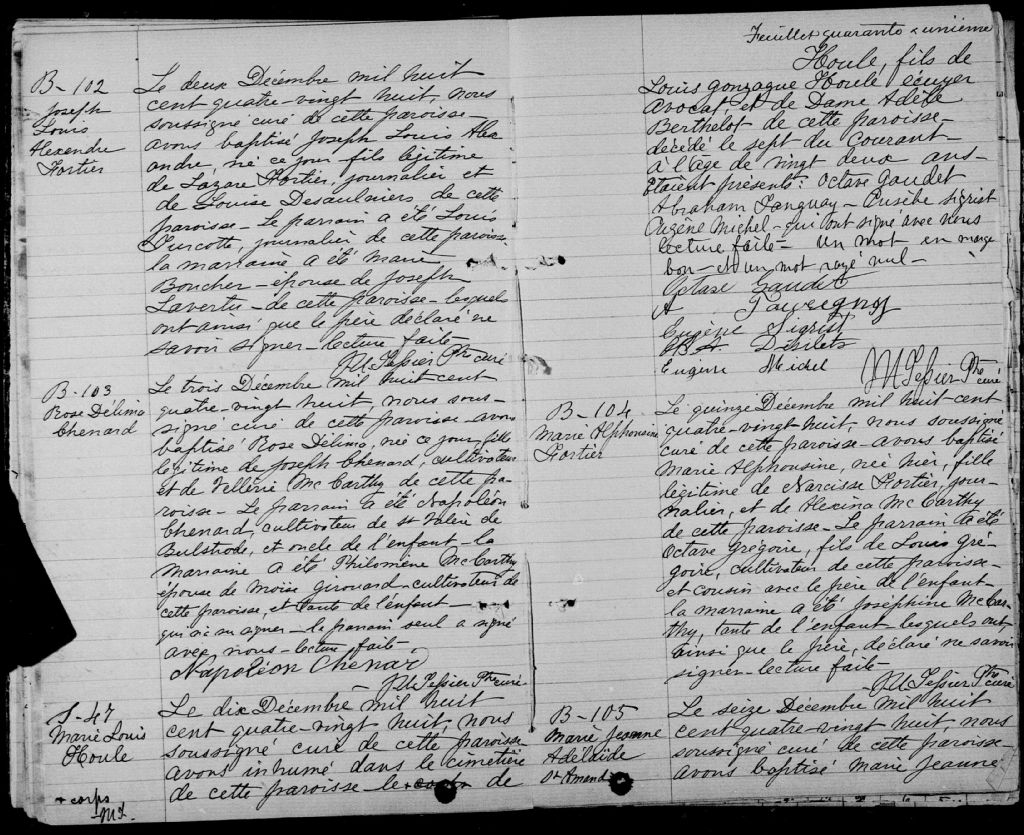 B-102
Joseph
Louis
Alexendre
Fortier
Le deux Décembre mil huit
cent quatre-vingt huit, nous
soussigné curé de cette paroisse
avons baptisé Joseph Louis Alex
andre, né ce jour fils légitime
de Lazare Fortier, journalier et
de Louise Desaulniers, de cette
paroisse - Le parrain a été Louis
Turcotte, journalier de cette paroisse
la marraine a été Marie
Boucher - épouse de Joseph
Lavertu - de cette paroisse - lesquels
ont ainsi que le père déclaré ne
savoir signer - lecture faite -
Tessier Ptre curé
B-103
Rose Délima
Chenard
Le trois Décembre mil huit cent
quatre-vingt huit, nous sous-
signé curé de cette paroisse avons
baptisé Rose Délima, née ce jour, fille
légitime de Joseph Chenard, cultivateur
et de Vellérie McCarthy de cette pa-
roisse - Le parrain a été Napoléon
Chenard, cultivateur de St Valère de
Bulstrode, et oncle de l'enfant - la
marraine a été Philomène McCarthy
épouse de Moïse Girouard - cultivateur de
cette paroisse, et tante de l'enfant -
qui n'a su signer - le parrain seul a signé
avec nous - lecture faite -
Napoléon Chenar
Tessier Ptre curé -
S-47
Marie Louis
Houle
Le dix Décembre mil huit
cent quatre-vingt huit, nous
soussigné curé de cette paroisse
avons inhumé dans le cimetière
de cette paroisse le + de
+ corps
Feuillet quarante & unième
Houle, fils de
Louis Gonzague Houle écuyer
avocat, et de Dame Adèle
Berthelot de cette paroisse -
décédé le sept du courant -
à l'âge de vingt deux ans -
Etaient présents: Octave Gaudet
Abraham Tanguay - Eusèbe Sigrist
Eugène Michel - qui ont signé avec nous
lecture faite - Un mot en marge
bon - et un mot rayé nul -
Octave Gaudet
A
Eugène Sigrist
Désilets
Eugène Michel
Tessier Ptre curé
B-104
Marie Alphonsine
Fortier
Le quinze Décembre mil huit cent
quatre-vingt huit, nous soussigné
curé de cette paroisse - avons baptisé
Marie Alphonsine, née hier, fille
légitime de Narcisse Fortier, jour-
nalier, et de Alexina McCarthy
de cette paroisse - Le parrain a été
Octave Grégoire, fils de Louis Gré-
goire, cultivateur de cette paroisse -
et cousin avec le père de l'enfant
la marraine a été Joséphine McCar-
thy, tante de l'enfant lesquels ont,
ainsi que le père, déclaré ne savoir
signer - lecture faite -
Tessier Ptre curé
B-105
Marie Jeanne
Adélaïde
St Amand
Le seize Décembre mil huit
cent quatre-vingt huit, nous
soussigné curé de cette paroisse -
avons baptisé Marie Jeanne